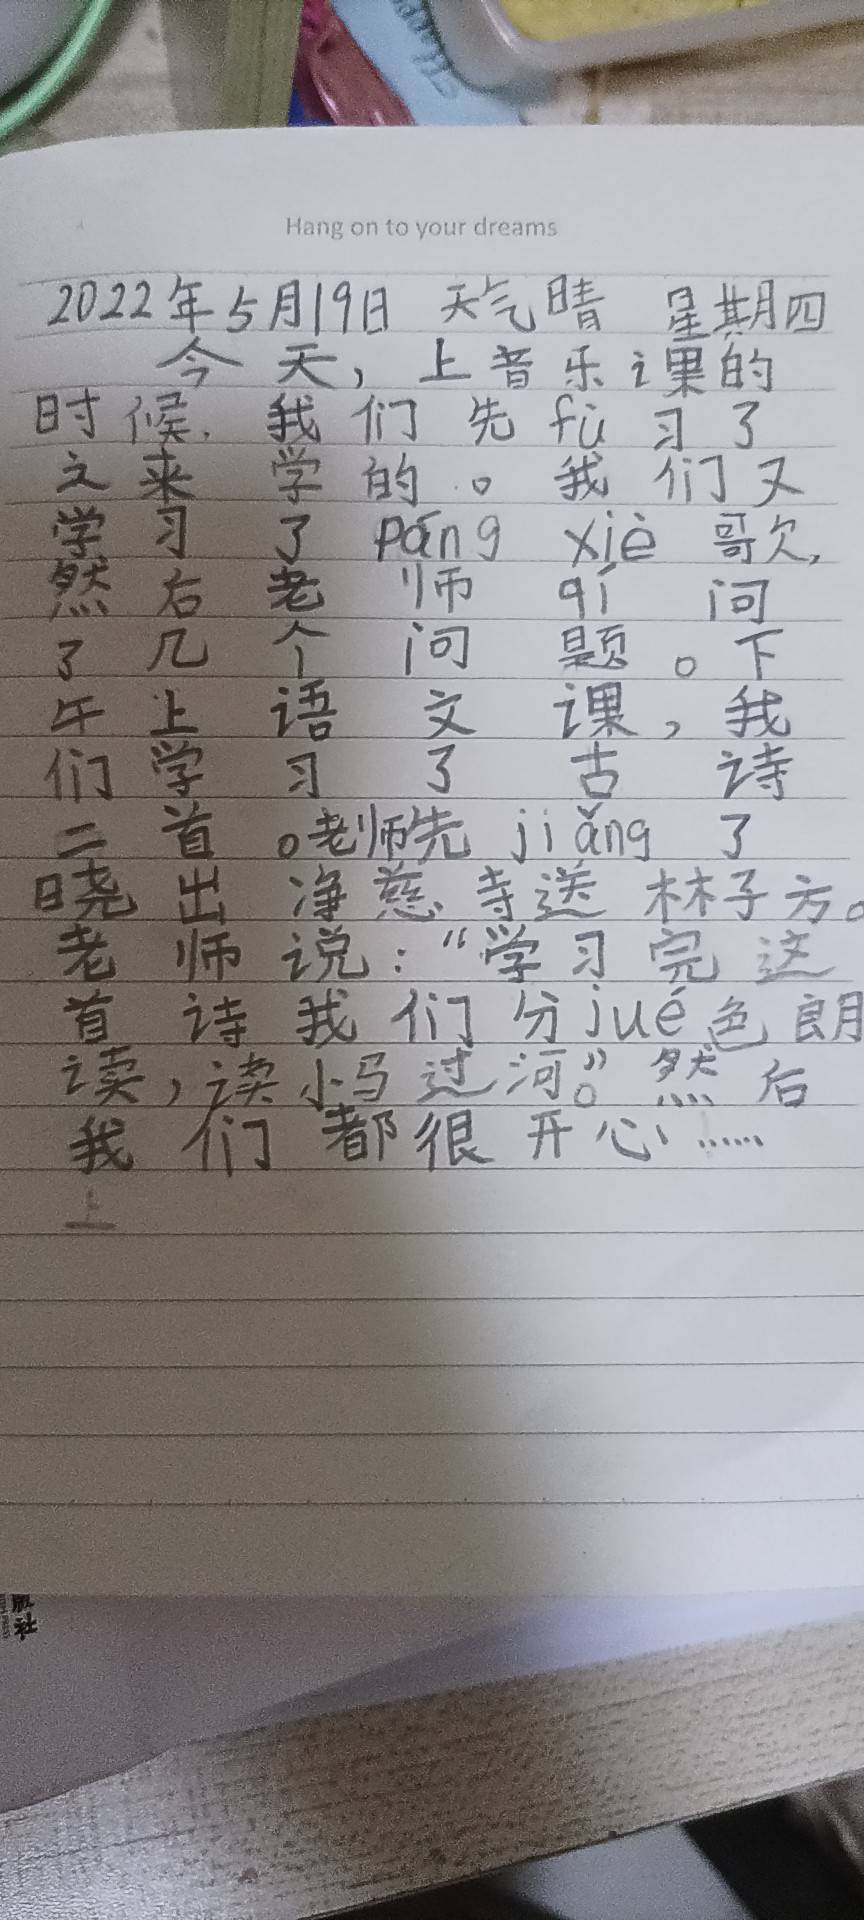 Hang on to your dreams
2022年5月19日 天气晴 星期四
今天，上音乐课的
时候，我们先fù习了
之来学的。我们又
学习了páng xiè歌，
然右老师qí问
了几个问题。下
午上语文课，我
们学习了古诗
二首。老师先jiǎng了
晓出净慈寺送林子方。
老师说：“学习完这
首诗我们分jué色朗
读，读小马过河”。然后
我们都很开心……
上
版社